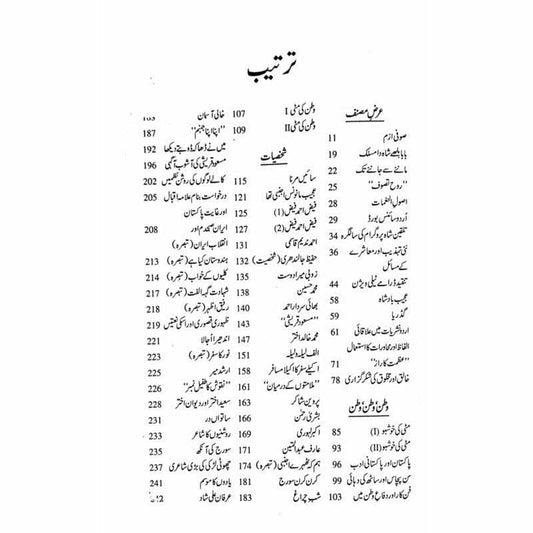 ترتیب
عرضِ مصنف
صوفی ازم 11
بابا بلھے شاہ دا مسلک 19
ماننے سے جاننے تک 22
"روح تصوف" 25
اصول الغمات 28
اردو سائنس بورڈ 29
تلقین شاہ پروگرام کی سالگرہ 34
نئی تہذیب اور معاشرے 36
کے مسائل
تنقید ڈرامے ٹیلی ویژن 44
عجیب بادشاہ 58
گڈریا 59
اردو نشریات میں علاقائی 61
الفاظ اور محاورات کا استعمال
"عظمت کا راز" 71
خالق اور مخلوق کی شکر گزاری 78
وطن، وطن، وطن
مٹی کی خوشبو (I) 85
مٹی کی خوشبو (II) 93
پاکستان اور پاکستانی ادب 96
سن پچاس اور ساٹھ کی دہائی 99
فن کار اور دفاع وطن میں 103
وطن کی مٹی I 107
وطن کی مٹی II 109
شخصیات
سائیں مرنا 115
عجیب مانوس اجنبی تھا 121
فیض احمد فیض (1) 125
فیض احمد فیض (2) 127
احمد ندیم قاسمی 131
حفیظ جالندھری (شخصیت) 132
زوبی میرا دوست 135
محمد حسین 138
بھائی سردار احمد 140
"مسعود قریشی" 143
محمد خالد اختر 147
الف لیلہ و لیلہ 152
اکیلے سفر کا اکیلا مسافر 158
"ملامتوں کے درمیان" 161
پروین شاکر 163
بشریٰ رحمٰن 166
اکبر لاہوری 169
عارف عبدالمتین 171
ہم کہ ٹھہرے اجنبی (تبصرہ) 174
کرن کرن سورج 181
شب چراغ 183
خالی آسمان 185
"اپنا اپنا جہنم" 187
میں نے ڈھاکہ ڈوبتے دیکھا 192
مسعود قریشی کی آشوب آگہی 196
کالے لوگوں کی روشن نظمیں 202
درخواست بنام علامہ اقبال 205
اور غایت پاکستان
ایران تمدن اور 208
انقلاب ایران (تبصرہ)
ہندوستان کیا ہے (تبصرہ) 213
کلیوں کے خواب (تبصرہ) 214
شہادت گہہ الفت (تبصرہ) 217
رفیق اظہر (تبصرہ) 218
ظہوری قصوری اور اسکی نعتیں 219
اندھیرا اجالا 221
نور کا سفر (تبصرہ) 223
ارشد میر 225
"نقوش کا طفیل نمبر" 226
سعید اختر اور دیوان اختر 228
ساتواں در 231
روشنیوں کا شاعر 233
سورج کی آنکھ 235
چھوٹی لڑکی کی بڑی شاعری 237
یادوں کا موسم 241
عرفان علی شاد